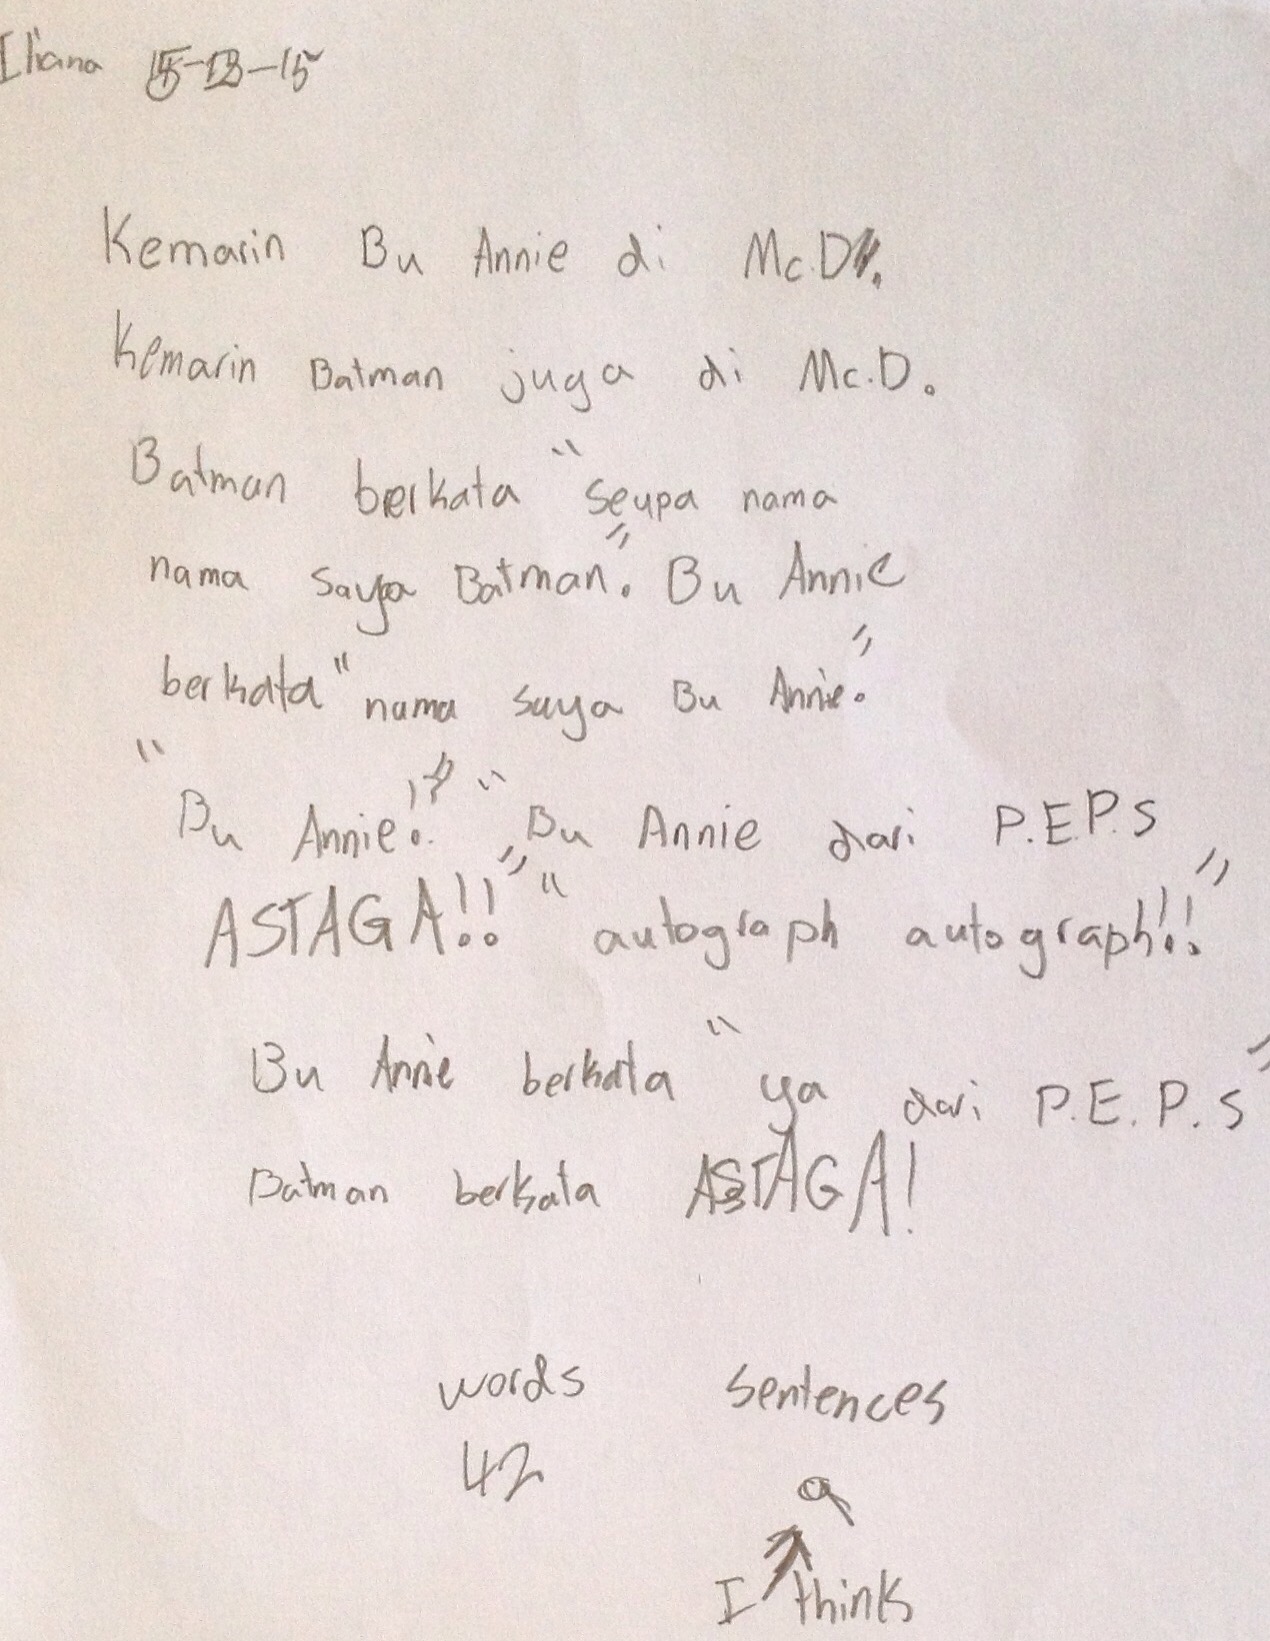 Iliana 5-13-15
Kemarin Bu Annie di Mc.D.
Kemarin Batman juga di Mc.D.
Batman berkata "seupa nama
nama saya Batman." Bu Annie
berkata "nama saya Bu Annie."
"Bu Annie!?" "Bu Annie dari P.E.P.S
ASTAGA!!" "autograph autograph!!"
Bu Annie berkata "ya dari P.E.P.S"
Batman berkata ASTAGA!
words sentences
42 9
I think